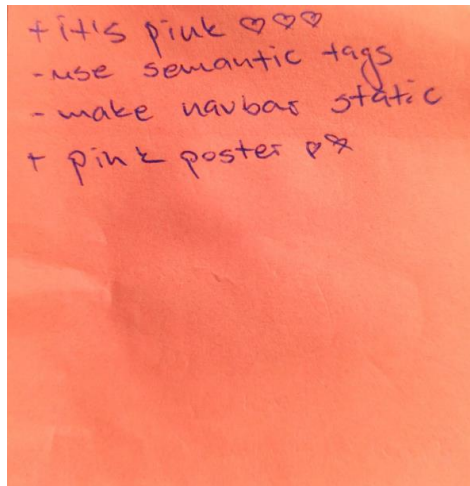 + it's pink ♡♡♡
- use semantic tags
- make navbar static
+ pink poster ♡♡